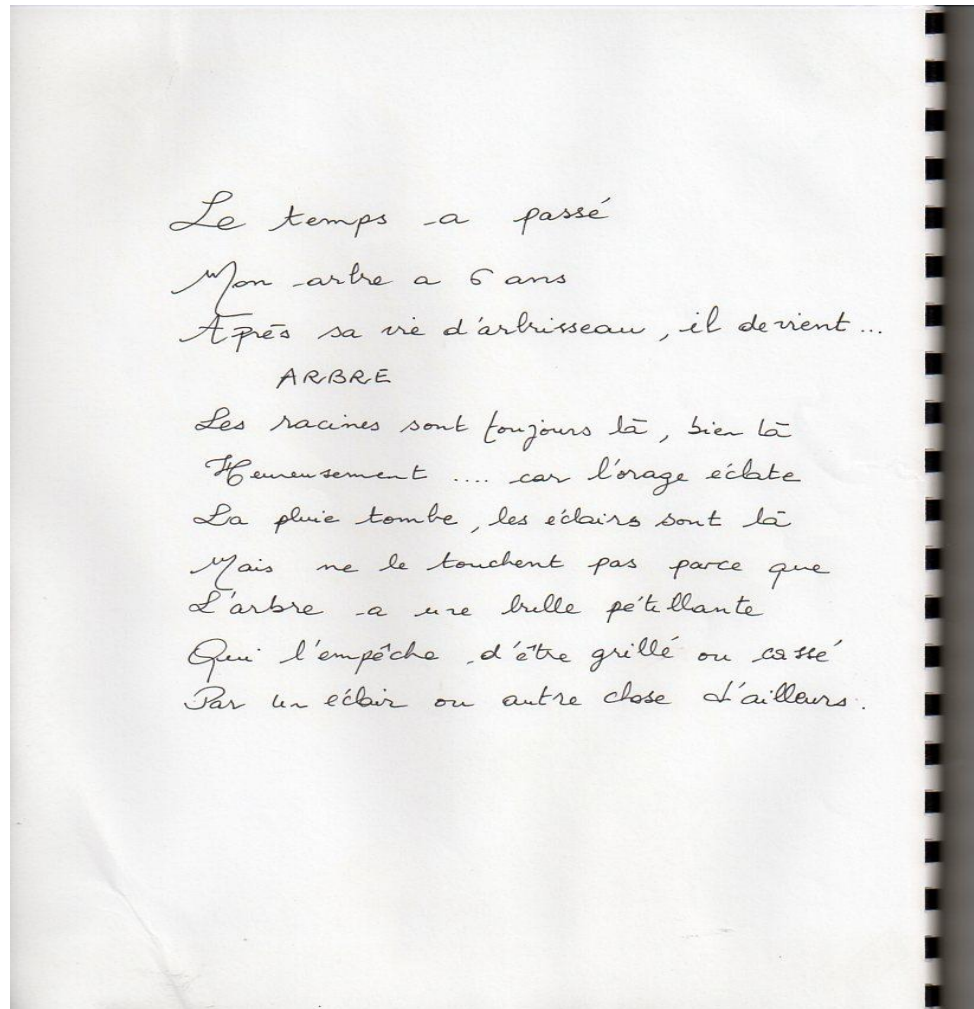 Le temps a passé
Mon arbre a 6 ans
Après sa vie d'arbrisseau, il devient...
ARBRE
Les racines sont toujours là, bien là
Heureusement .... car l'orage éclate
La pluie tombe, les éclairs sont là
Mais ne le touchent pas parce que
L'arbre a une bulle pétillante
Qui l'empêche d'être grillé ou cassé
Par un éclair ou autre chose d'ailleurs.